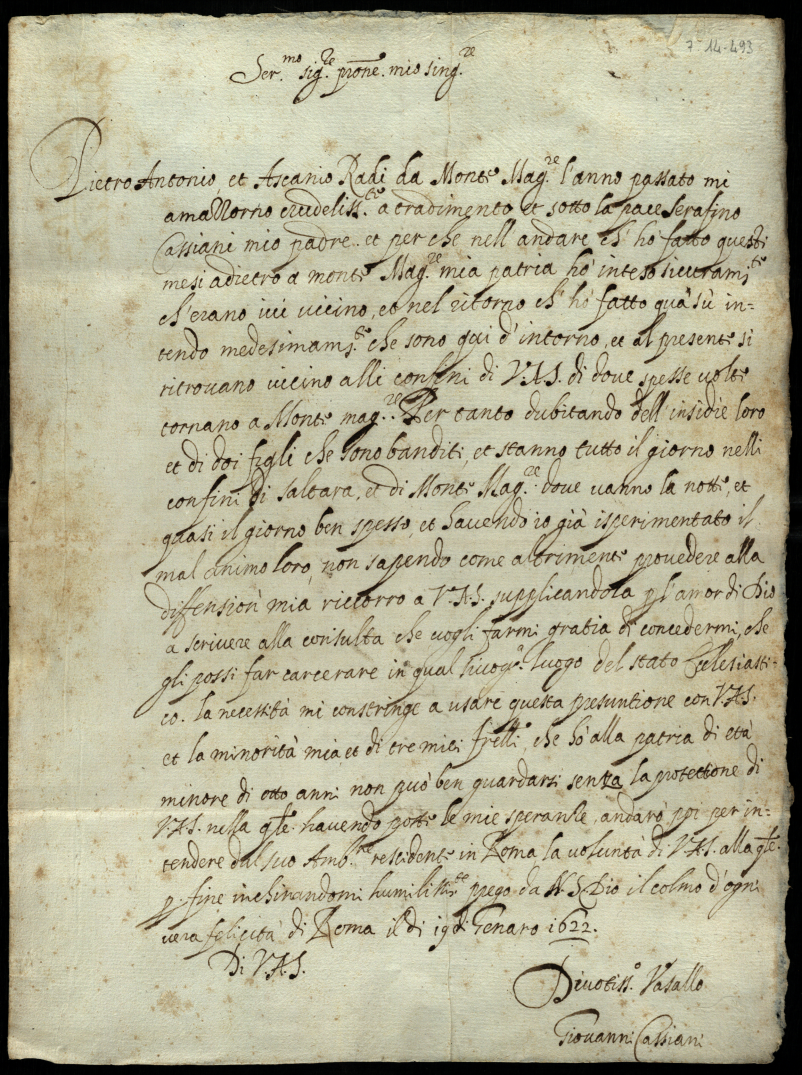 7-14-493
Ser.mo sig.re pron̄e. mio sing.re
Pietro Antonio, et Ascanio Radi da Monte Mag.re l'anno passato mi
amazzorno crudeliss.te a tradimento et sotto la pace Serafino
Cassiani mio padre. et per che nell andare ch' hò fatto questi
mesi adietro a monte Mag.re mia patria hò inteso sicuram.te
ch'erano ivi vicino, et nel ritorno ch' hò fatto quà sù in=
tendo medesimam.te che sono qui d'intorno, et al presente si
ritrovano vicino alli confini di V.A.S. di dove spesse volte
tornano a Monte mag.re Per tanto dubitando dell'insidie loro
et di doi figli che sono banditi, et stanno tutto il giorno nelli
confini di Saltara, et di Monte Mag.re dove vanno la notte, et
quasi il giorno ben spesso, et havendo io già isperimentato il
mal animo loro, non sapendo come altrimente provedere alla
diffension' mia riccorro a V.A.S. supplicandola p l'amor di Dio
a scrivere alla consulta che vogli farmi gratia di concedermi, che
gli possi far carcerare in qual luogo del stato Eclesiasti-
co. la necessità mi constringe a usare questa presuntione con V.A.S.
et la minorità mia et di tre miei frelli, che hò alla patria di età
minore di otto anni non può ben guardarsi senza la protettione di
V.A.S. nella qle. havendo poste le mie speranze, andarò poi per in=
tendere dal suo Amb.re rescidente in Roma la voluntà di V.A.S. alla qle.
p. fine inchinandomi humiliss.te prego da N.S. Dio il colmo d'ogni
vera felicità di Roma il dì 19 d. Genaro 1622.
Di V.A.S.
Divotiss.o Vasallo
Giovanni Cassiani